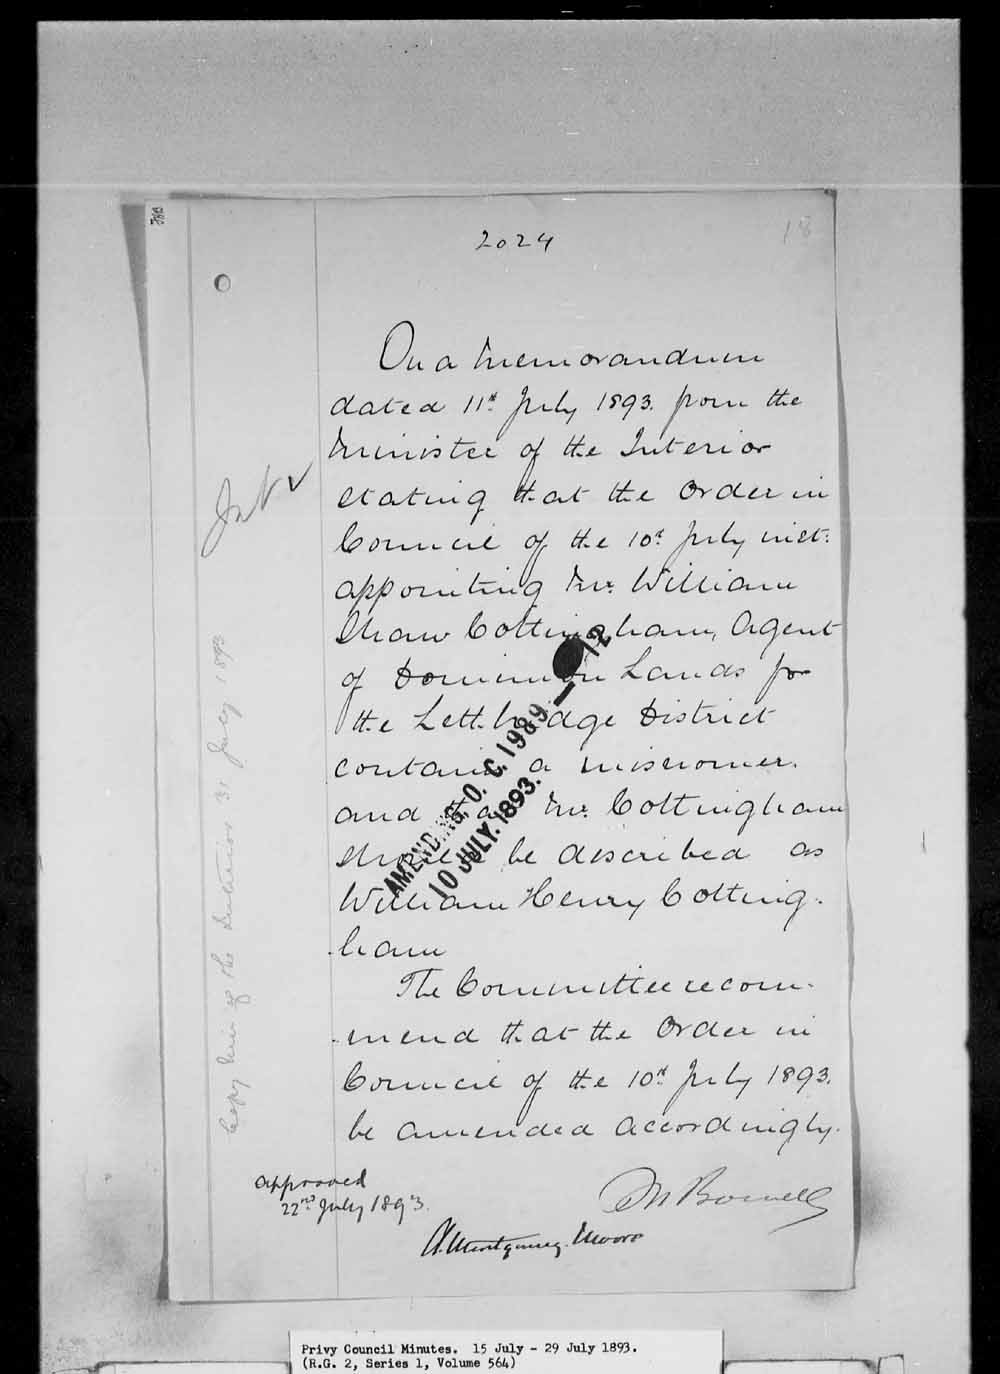 2024
18
On a Memorandum
dated 11th July 1893. from the
Minister of the Interior
stating that the Order in
Council of the 10th July inst:
appointing Mr. William
Shaw Cottingham, Agent
of Dominion Lands for
the Lethbridge District
contains a misnomer.
and that Mr. Cottingham
should be described as
William Henry Cotting-
ham
The Committee recom-
-mend that the Order in
Council of the 10th July 1893.
be amended accordingly.
M Bowell
approved
22nd July 1893.
A. Montgomery. Moore
Int
Copy Min of the Interior 31 July 1893
AMENDING, O. C. 1989 — 12
10 JULY. 1893.
Privy Council Minutes. 15 July - 29 July 1893.
(R.G. 2, Series 1, Volume 564)